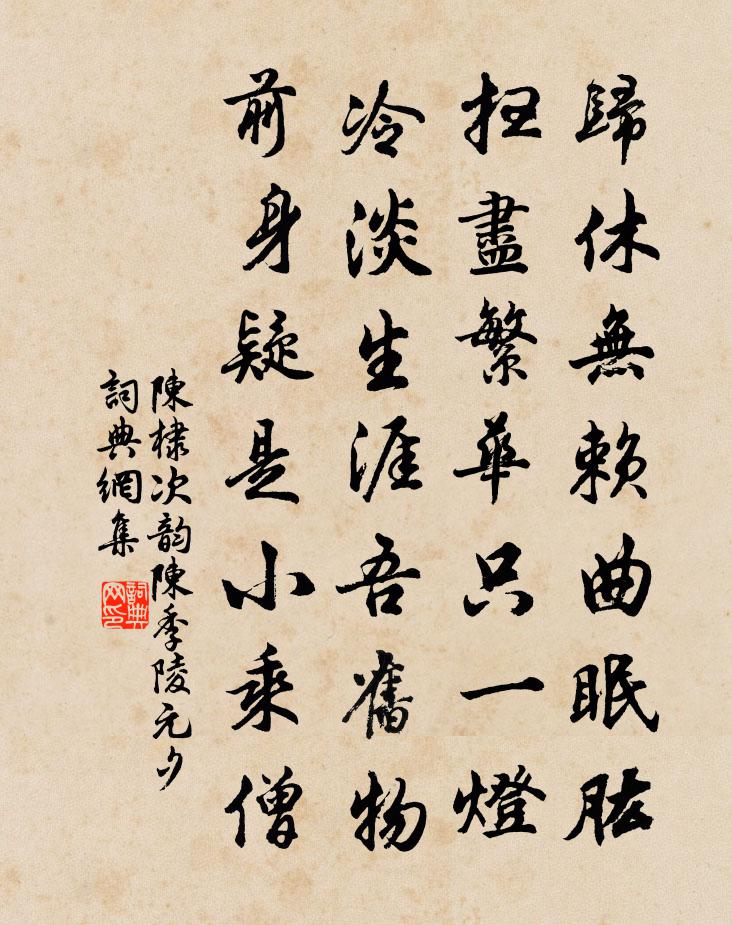 歸休無賴曲眠肱
枉盡繁華只一燈
冷淡生涯吾舊物
前身疑是小乘僧
陳棣次韵陳季陵元夕
詞典網集
詞典网印